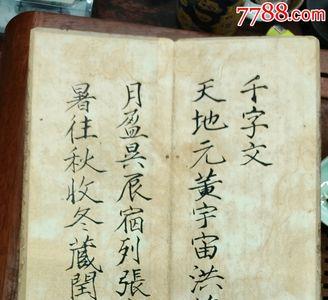 7788.com
千字文
天地元黃宇宙洪
月盈昃辰宿列張
暑往秋收冬藏閏